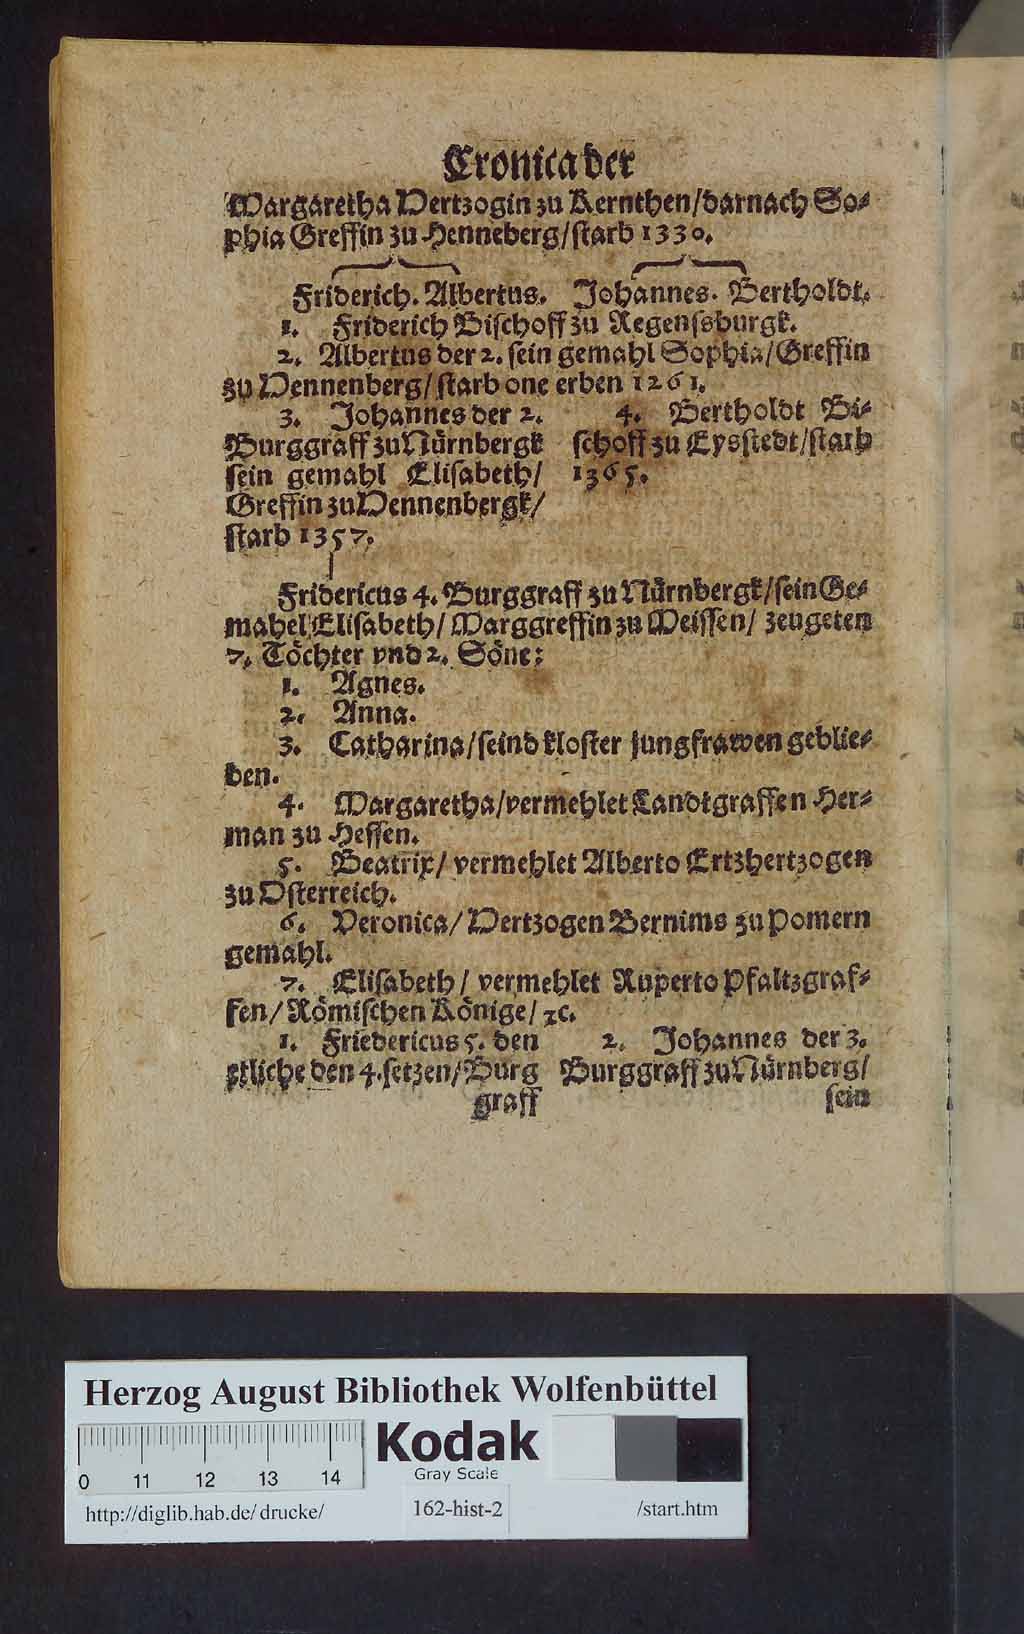 Cronica der
Margaretha Hertzogin zu Kernthen/darnach So⸗
phia Greffin zu Henneberg/starb 1330.
Friderich. Albertus. Johannes. Bertholdt.
1. Friderich Bischoff zu Regenssburgk.
2. Albertus der 2. sein gemahl Sophia/Greffin
zu Hennenberg/starb one erben 1261.
3. Johannes der 2.
Burggraff zu Nürnbergk
sein gemahl Elisabeth/
Greffin zu Hennenbergk/
starb 1357.
4. Bertholdt Bi⸗
schoff zu Eysstedt/starb
1365.
Fridericus 4. Burggraff zu Nürnbergk/sein Ge⸗
mahel Elisabeth/Marggreffin zu Meissen/ zeugeten
7. Töchter vnd 2. Söne:
1. Agnes.
2. Anna.
3. Catharina/seind kloster jungfrawen geblie⸗
ben.
4. Margaretha/vermehlet Landtgraffen Her⸗
man zu Hessen.
5. Beatrix/ vermehlet Alberto Ertzhertzogen
zu Osterreich.
6. Veronica/Hertzogen Bernims zu Pomern
gemahl.
7. Elisabeth/ vermehlet Ruperto Pfaltzgraf⸗
fen/Römischen Könige/ ꝛc.
1. Friedericus 5. den
etliche den 4. setzen/Burg
graff
2. Johannes der 3.
Burggraff zu Nürnberg/
sein
Herzog August Bibliothek Wolfenbüttel
0 11 12 13 14
Kodak
Gray Scale
http://diglib.hab.de/drucke/ 162-hist-2 /start.htm